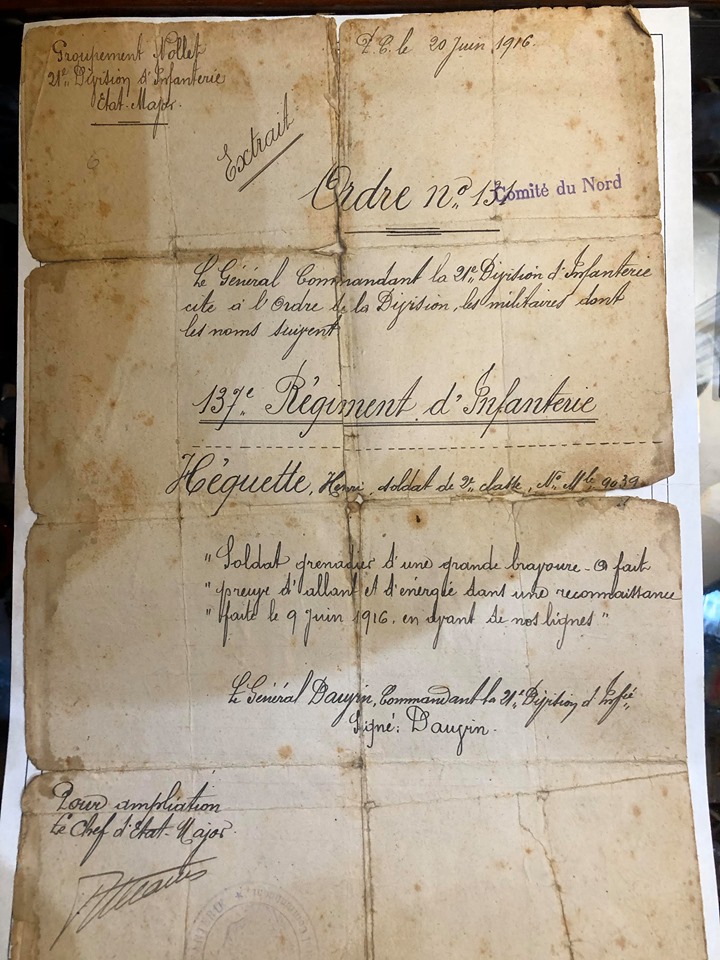 Groupement Nollet
21e Division d'Infanterie
Etat-Major.
P.C. le 20 Juin 1916.
Extrait
Ordre no 131
Comité du Nord
Le Général Commandant la 21e Division d'Infanterie
cite à l'Ordre de la Division, les militaires dont
les noms suivent
137e Régiment d'Infanterie
Héquette, Henri, soldat de 2e classe, No Mle 9039
"Soldat grenadier d'une grande bravoure - a fait
"preuve d'allant et d'énergie dans une reconnaissance
"faite le 9 Juin 1916. en avant de nos lignes"
Le Général Dauvin, Commandant la 21e Division d'Infie
Signé: Dauvin.
Pour ampliation
Le Chef d'Etat-Major